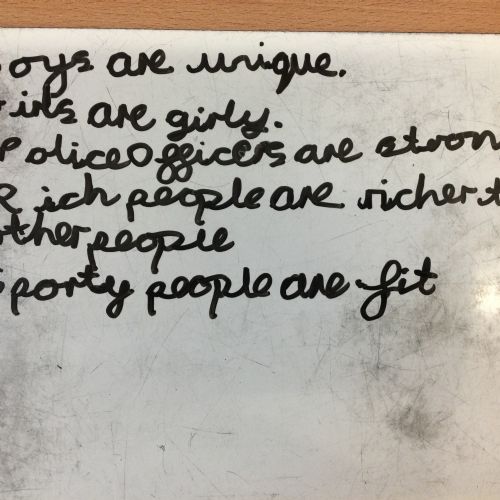 oys are unique.
irls are girly.
Police Officers are stron
Rich people are richer t
other people
Sporty people are fit